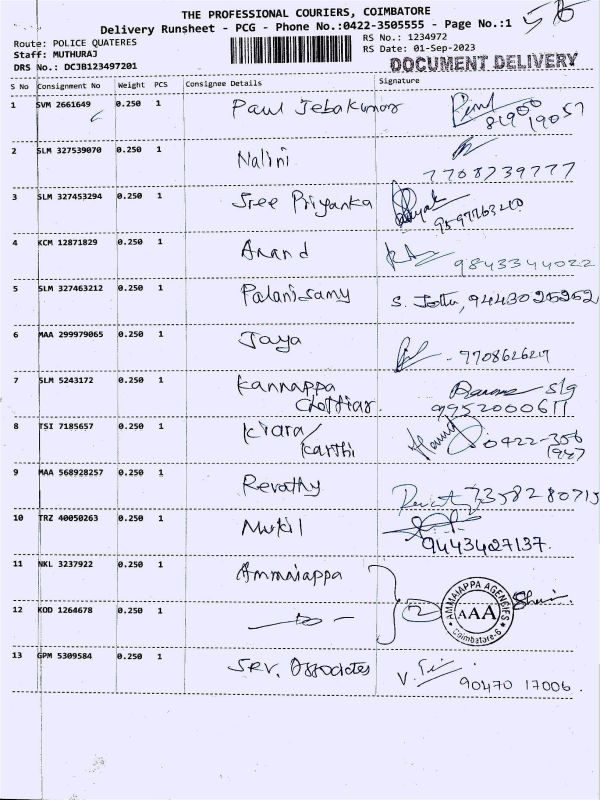 THE PROFESSIONAL COURIERS, COIMBATORE
Delivery Runsheet - PCG - Phone No.:0422-3505555 - Page No.:1
Route: POLICE QUATERES
RS No.: 1234972
Staff: MUTHURAJ
RS Date: 01-Sep-2023
DRS No.: DCJB123497201
DOCUMENT DELIVERY
S No Consignment No Weight PCS Consignee Details Signature
1 SVM 2661649 0.250 1 Paul Jebakumar
2 SLM 327539070 0.250 1 Nalini
7708739777
3 SLM 327453294 0.250 1 Sree Priyanka
4 KCM 12871829 0.250 1 Anand
9843344022
5 SLM 327463212 0.250 1 Palanisamy
6 MAA 299979065 0.250 1 Jaya
7 SLM 5243172 0.250 1 Kannappa
Chettiar.
9952000611
8 TSI 7185657 0.250 1 Kiara/
Karthi
9 MAA 568928257 0.250 1 Revathy
7358280715
10 TRZ 40050263 0.250 1 Mukil
9443427137.
11 NKL 3237922 0.250 1 Ammaiappa
AMMAIAPPA AGENCIES
AAA
Coimbatore-6
12 KOD 1264678 0.250 1
13 GPM 5309584 0.250 1 Srv. Associates
90470 17006.